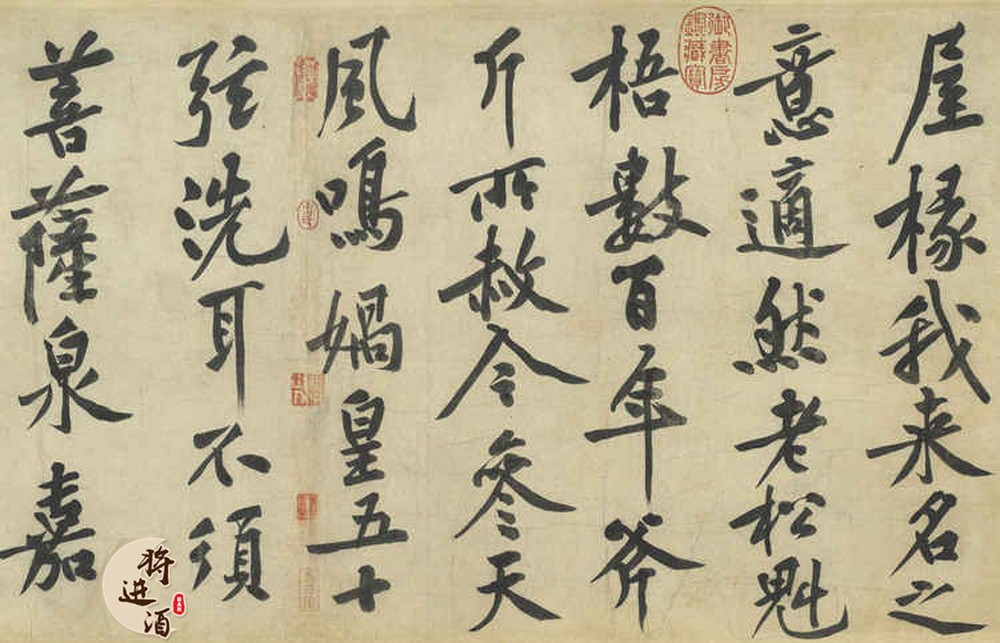 屋椽我来名之
意適然老松魁
梧數百年斧
斤所赦今參天
風鳴媧皇五十
弦洗耳不須
菩薩泉嘉
御書房鑑藏寶
将进酒